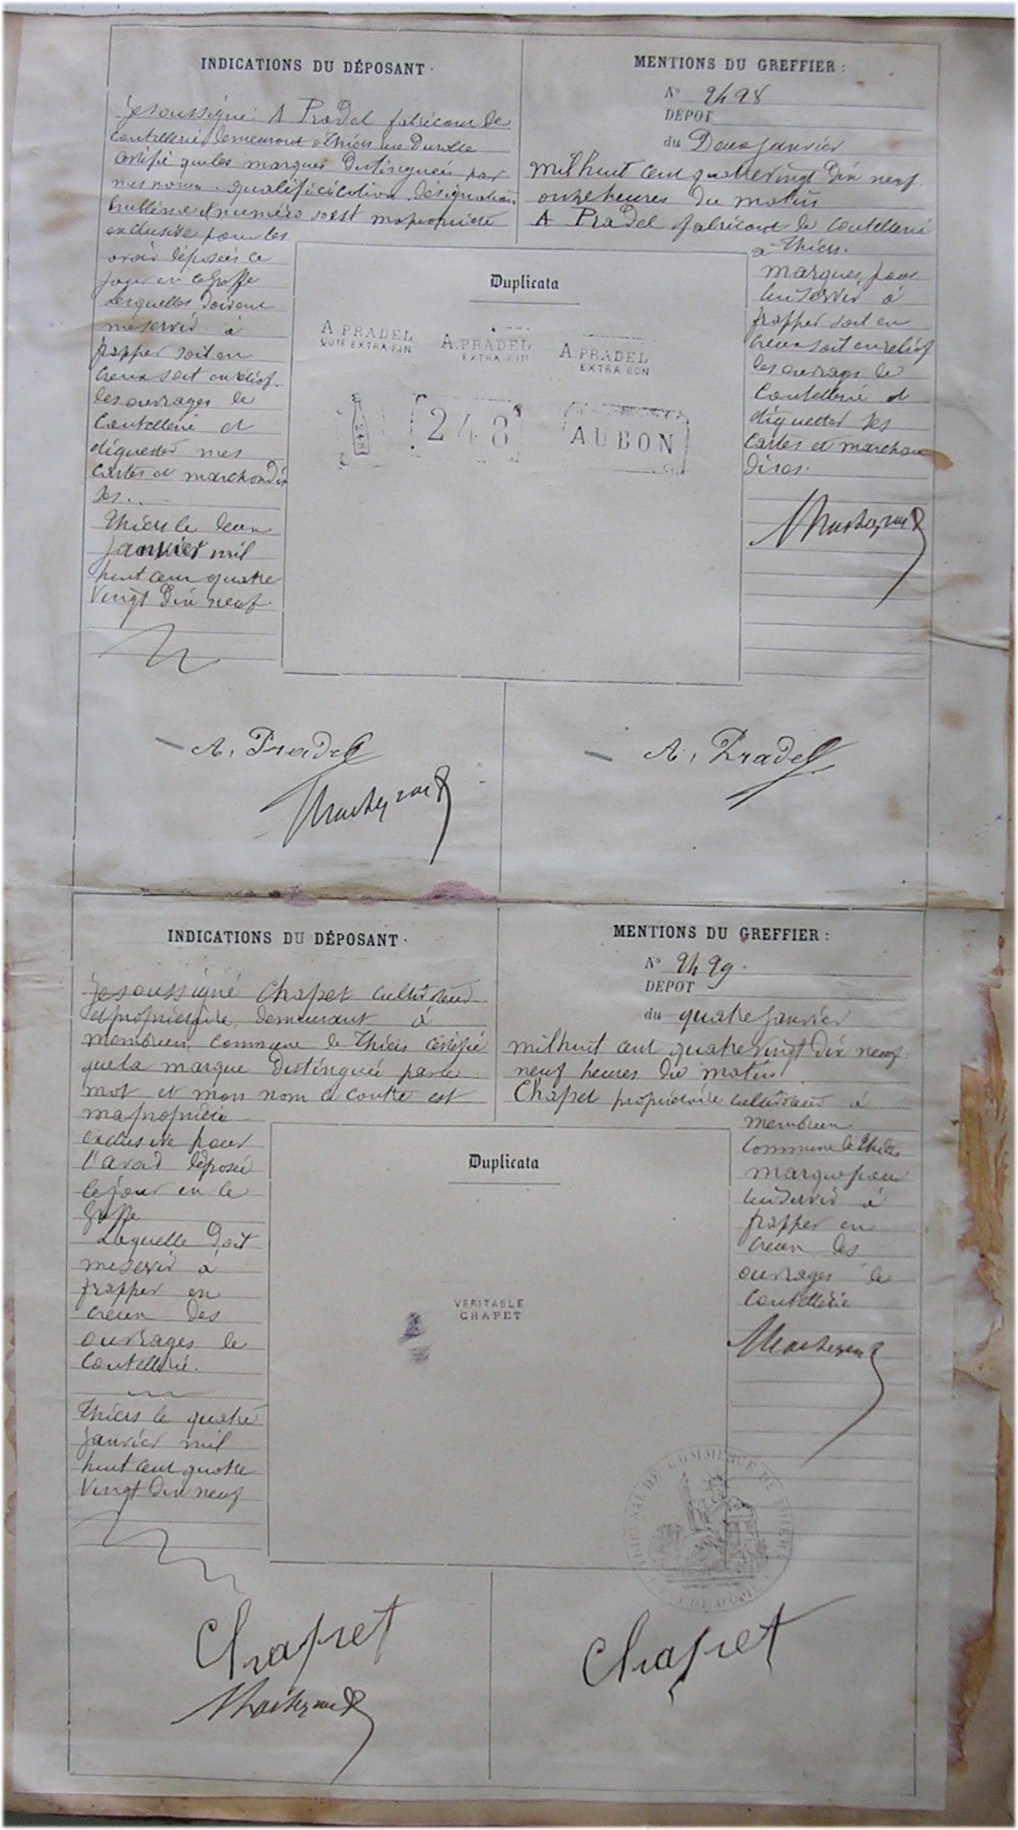 INDICATIONS DU DÉPOSANT.
Je soussigné A Pradel fabricant de
coutellerie demeurant à Thiers rue Durolle
certifie que les marques Distinguées par
mes noms. qualificication, désignation,
emblème & numéro sont ma propriété
exclusive pour les
avoir déposées ce
jour en ce Greffe
Lesquelles doivent
me servir à
frapper soit en
creux soit en relief
les ouvrages de
Coutellerie et
étiqueter mes
cartes et marchandi
ses.
Thiers le deux
janvier mil
huit cent quatre
vingt Dix neuf
MENTIONS DU GREFFIER :
N° 2498
DÉPOT
du Deux Janvier
mil huit cent quatre vingt Dix neuf
onze heures du matin
A Pradel fabricant de Coutellerie
à Thiers.
marques pour
lui servir à
frapper soit en
creux soit en relief
les ouvrages de
Coutellerie et
étiqueter ses
cartes et marchan
dises.
Duplicata
A. PRADEL
EXTRA FIN
A. PRADEL
EXTRA FIN
A. PRADEL
EXTRA BON
248
248
AUBON
A. Pradel
A. Pradel
INDICATIONS DU DÉPOSANT.
Je soussigné Chapet cultivateur
et propriétaire, demeurant à
membrun commune de Thiers certifie
que la marque Distinguée par le
mot et mon nom ci contre est
ma propriété
exclusive pour
l'avoir déposée
ce jour en ce
Greffe
Laquelle doit
me servir à
frapper en
creux des
ouvrages de
Coutellerie.
Thiers le quatre
Janvier mil
huit cent quatre
Vingt Dix neuf
MENTIONS DU GREFFIER :
N° 2499.
DÉPOT
du quatre Janvier
mil huit cent quatre vingt Dix neuf
neuf heures du matin
Chapet propriétaire cultivateur à
membrun
commune de Thiers
marque pour
lui servir à
frapper en
creux des
ouvrages de
Coutellerie
Duplicata
VERITABLE
CHAPET
TRIBUNAL DE COMMERCE DE THIERS
Chapet
Chapet